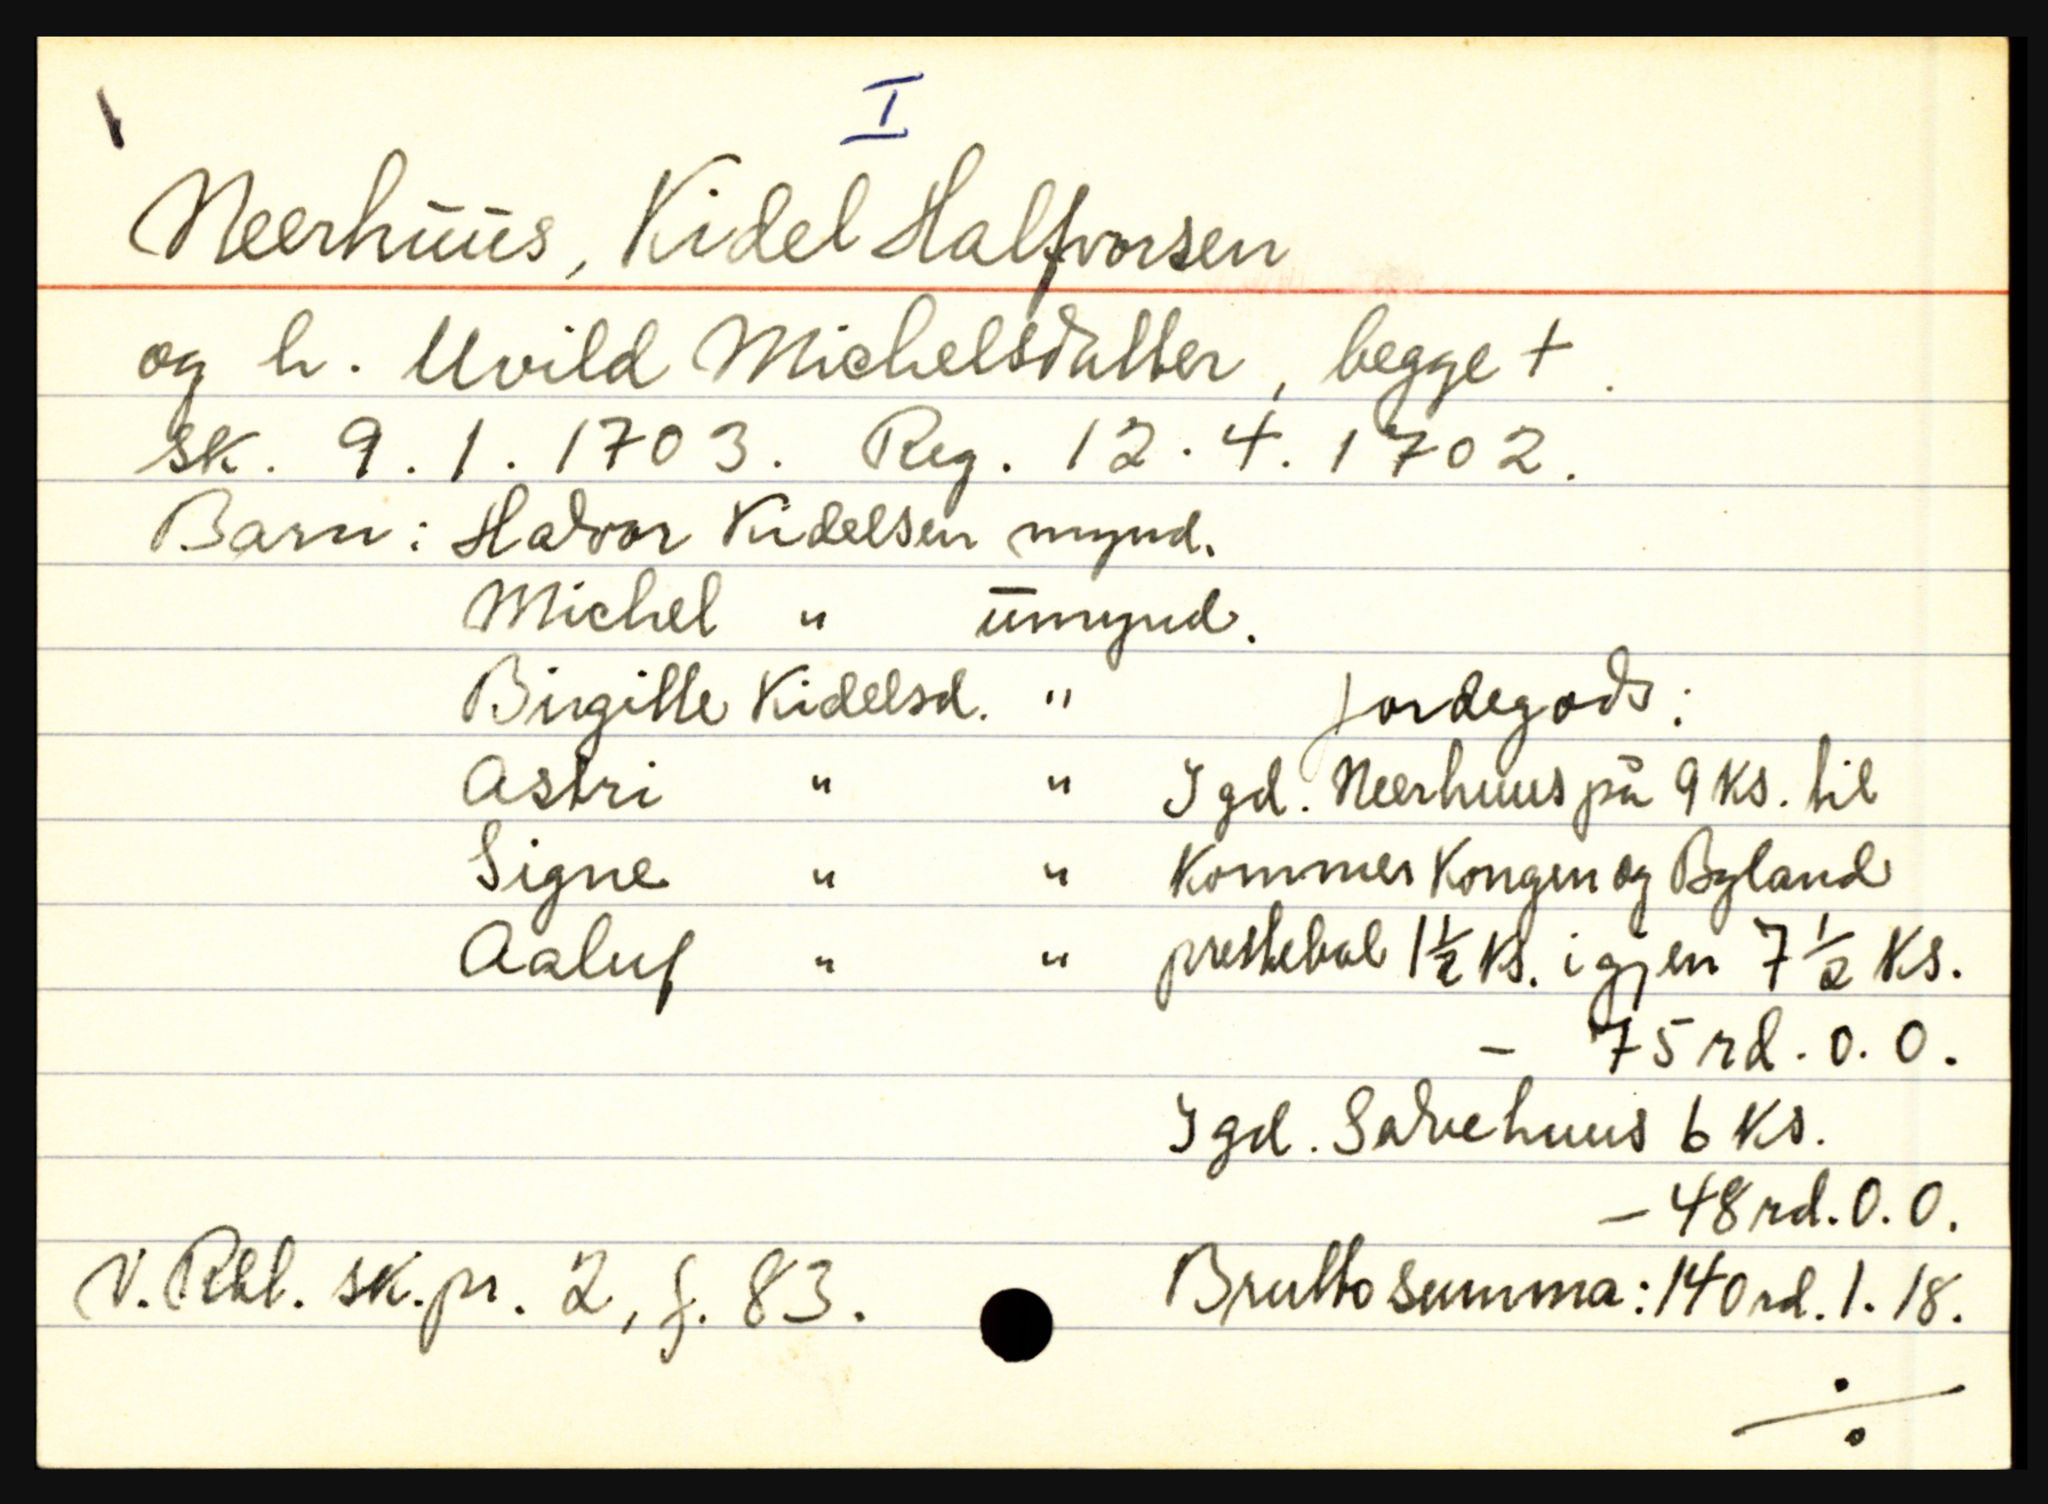 I
Neerhūūs, Kidel Halfvorsen
og h. Uvild Michelsdatter, begge +.
sk. 9.1.1703. Reg. 12.4.1702.
Barn: Halvor Kidelsen mynd.
Michel " ūmynd.
Birgitte Kidelsd. "
Astri " "
Signe " "
Aaluf " "
Jordegods:
I gd. Neerhuus på 9 Ks. til
kommer Kongen og Bygland
prestebol 1½ Ks. igjen 7½ Ks.
- 75 rd. 0. 0.
I gd. Salvehuus 6 Ks.
- 48 rd. 0. 0.
Brutto summa: 140 rd. 1. 18.
V. Rbl. sk.pr. 2, f. 83.
÷